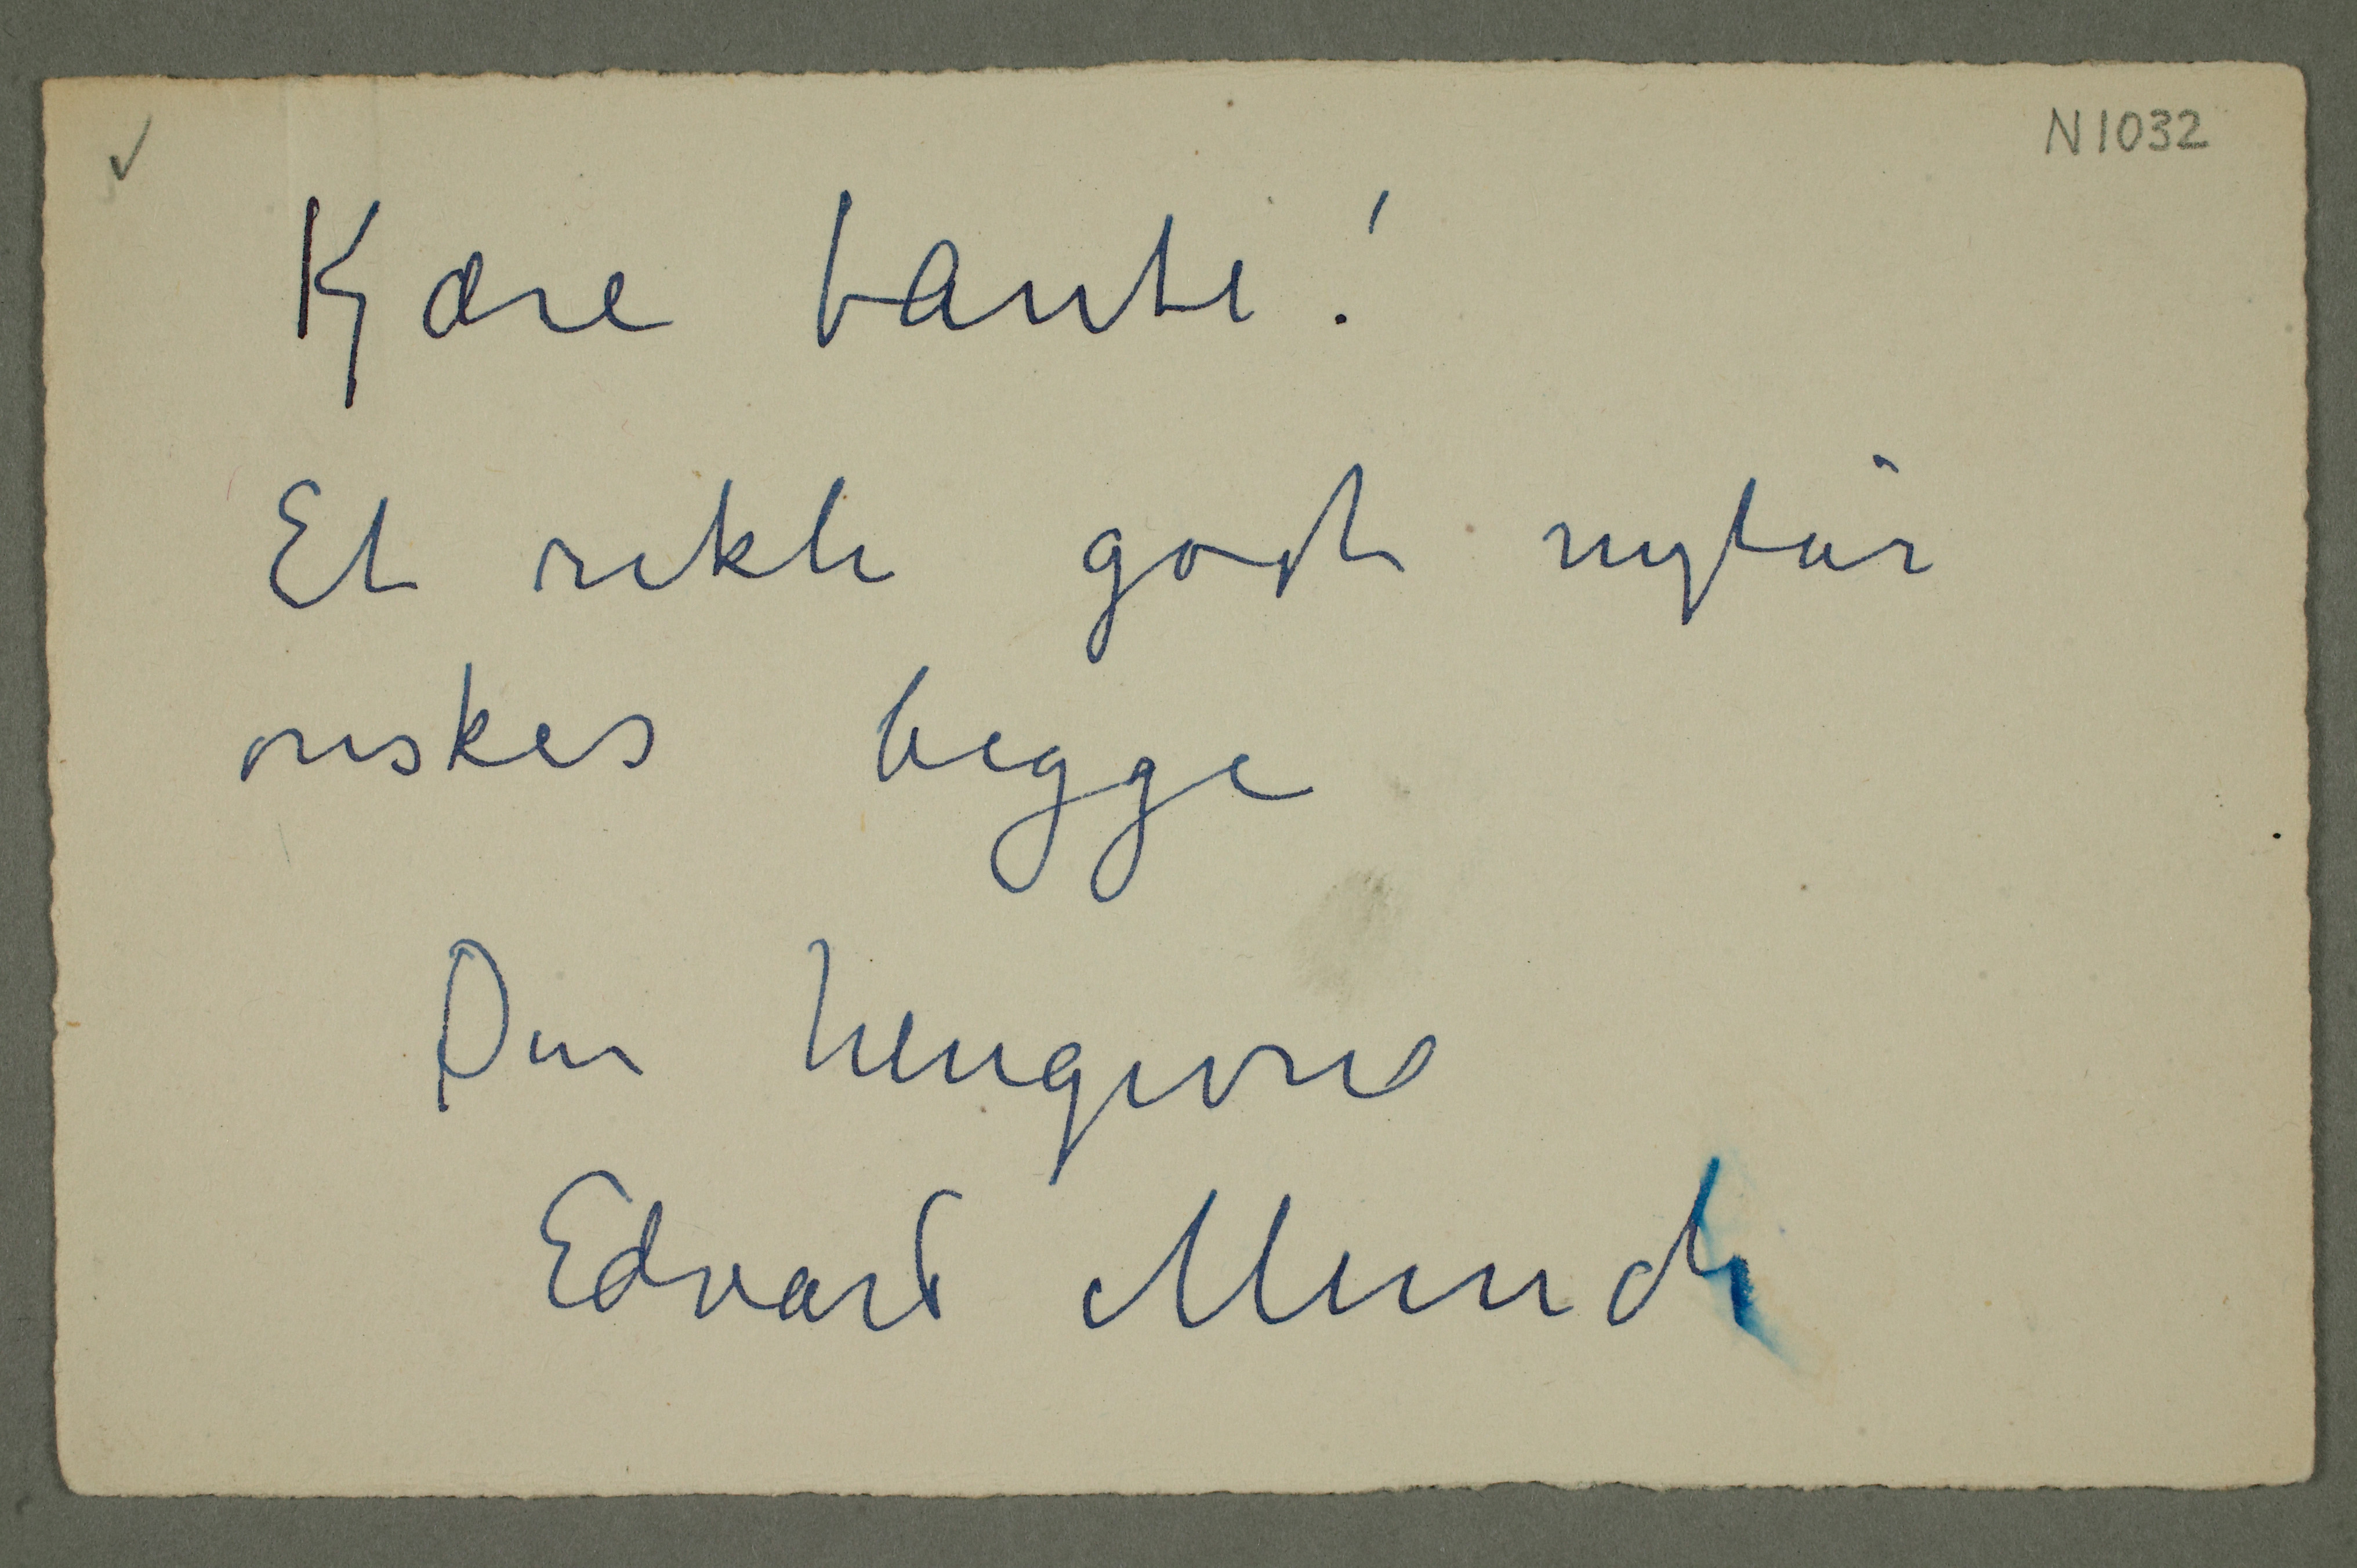 N 1032
Kjære tante!
Et rikti godt nytår
ønskes begge
Din hengivne
Edvard Munch